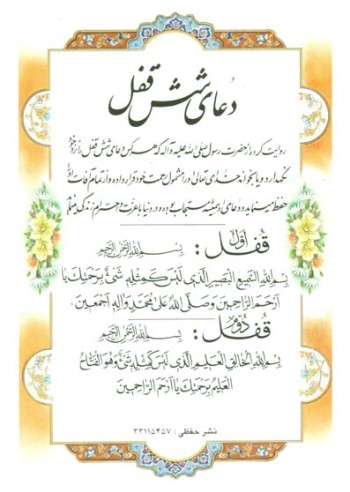 دعای شش قفل
روایت کرده از حضرت رسول صلی الله علیه و آله که هر کس دعای شش قفل را نزد خود
نگهدارد و یا بخواند خدای تعالی او را مشمول رحمت خود قرار داده و از تمام آفات او را
حفظ مینماید و دعای او همیشه مستجاب بوده و در دنیا با عزت و احترام زندگی
قفل اول: بِسمِ اللهِ الرَّحمنِ الرَّحیمِ
بِسمِ اللهِ السَّمیعِ البَصیرِ الَّذی لَیسَ کَمِثلِهِ شَیءٌ بِرَحمَتِکَ یا
اَرحَمَ الرّاحِمینَ وَصَلَّی اللهُ عَلی مُحَمَّدٍ وَآلِهِ اَجمَعینَ.
قفل دوم: بِسمِ اللهِ الرَّحمنِ الرَّحیمِ
بِسمِ اللهِ الخالِقِ العَلیمِ الَّذی لَیسَ کَمِثلِهِ شَیءٌ وَهُوَ الفَتّاحُ
العَلیمُ بِرَحمَتِکَ یا اَرحَمَ الرّاحِمینَ
نشر حفظی: ۳۳۱۱۵۴۵۷